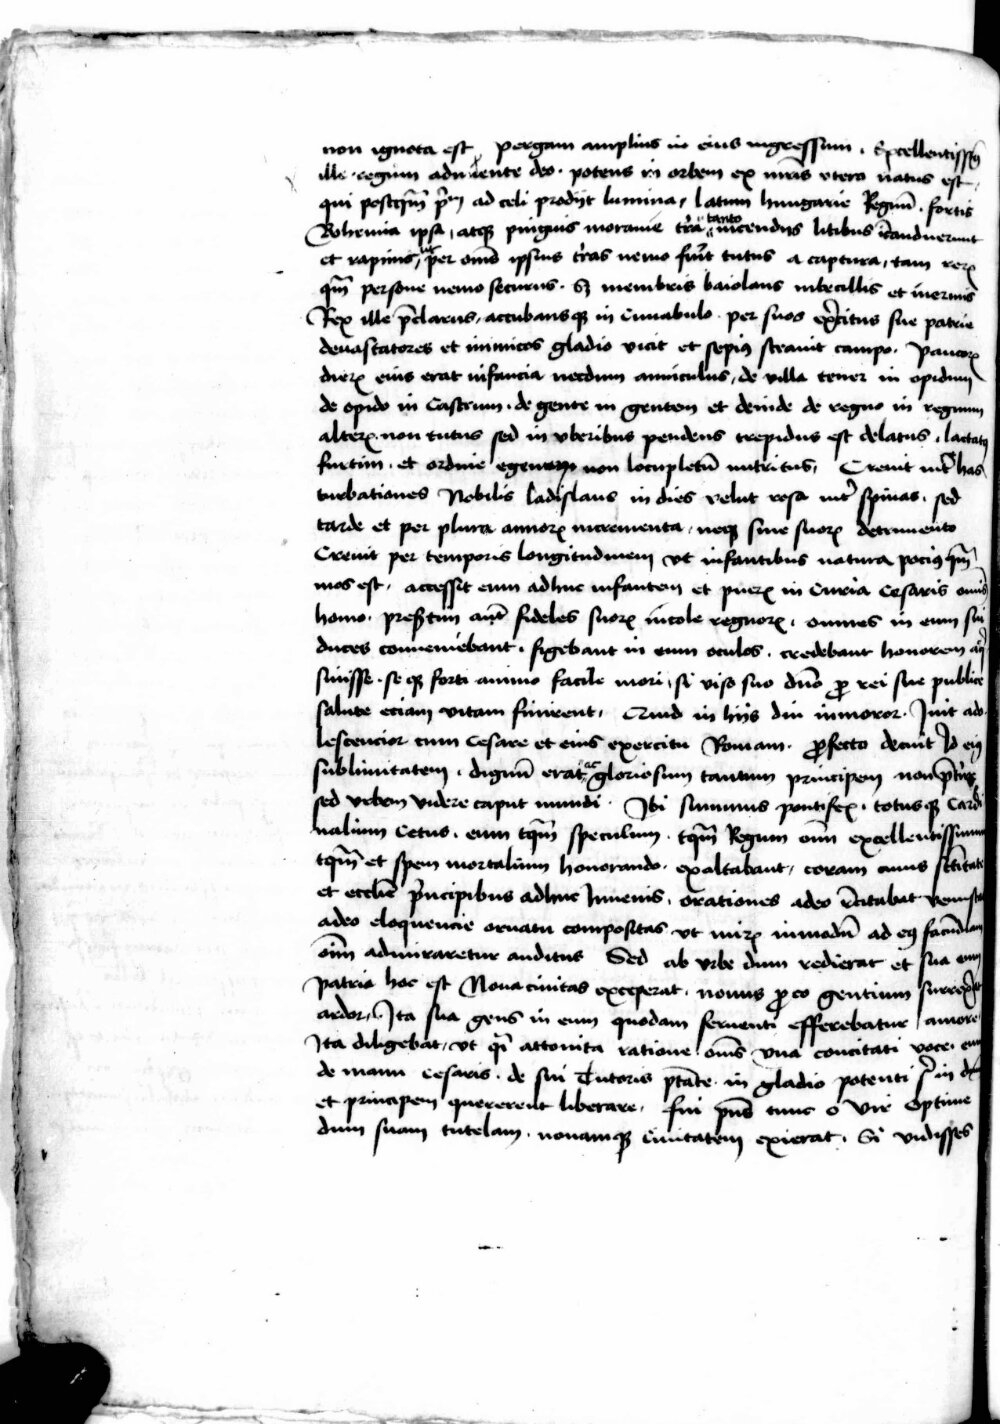 non ignota est, Pergam amplius in eius ingressum. Excellentissimꝰ
ille regum adnitente deo. potens in orbem ex mr̄is vtero natus est,
qui postqm̄ pm̄ ad celi prodijt lumina, latum hungarie Regnū. fortis
Bohemia ipsa, atqꝫ pinguis morauie tr̄a tanto incendijs litibus
et rapinis, ac per omēs ipsius tr̄as nemo fuit tutus a captura, tam rerꝝ
qm̄ persone nemo securus. Sꝫ membris baiolans imbecillis et inermis
Rex ille p̄clarus, accubansqꝫ in Cunabulo. per suos exc̄itus sue patrie
deuastatores et inimicos gladio vicit et sepiꝰ strauit campo. Paucorꝝ
dierꝝ eius erat infancia necdum anniculus, de villa tener in opidum
de opido in Castrum. de gente in gentem et deinde de regno in regnum
alterꝝ. non tutus sed in vberibus pendens trepidus est delatus, lactatꝰ
furtim. et ordine egenorum non locupletū nutritus, Creuit int̄ has
turbationes Nobilis ladislaus in dies velut rosa int̄ spinas. sed
tarde et per plura annorꝝ incrementa, neqꝫ sine suorꝝ detrimento
Creuit per temporis longitudinem vt infantibus natura pociꝰ qm̄
mos est, accessit eum adhuc infantem et puerꝝ in Curia Cesaris omīs
homo. presertim aūt fideles suorꝝ incole regnorꝝ. omnes in eum sui
duces conueniebant. figebant in eum oculos. credebant honorem
siuisse. seqꝫ forti animo facile mori, si viso suo dn̄o ꝓ rei sue publice
salute eciam vitam finirent, Quid in hijs diu inmoror. Iuit ado
lescencior cum Cesare et eius exercitu Romam. ꝓfecto decuit Id eiꝰ
sublimitatem. dignū erat ac gloriosum tantum principem non
sed vrbem videre caput mundi. Ibi summus pontifex. totusqꝫ Cardi
nalium Cetus. eum tqm̄ speculum. tqm̄ Regum om̄ excellentissimum
tqm̄ et spem mortalium honorando. exaltabant, coram cuius sc̄titate
et eccl̄ie p̄ncipibus adhuc Iuuenis. orationes adeo r̄citabat venustas
adeo eloquencie ornatu compositas vt mirꝝ inmodū ad eiꝰ facūdiam
om̄ admiraretur auditus Sed ab vrbe dum redierat et sua eum
patria hoc est Noua ciuitas exceperat. nouus ꝓco gentium surrexit
ardor, Ita sua gens in eum quodam feruenti efferebatur amore
Ita diligebat, vt qi attonita ratione. omēs vna concitati voce. eum
de manu Cesaris. de sui Tutoris ptāte. in gladio potenti in
et principem quererent liberare, fui pn̄s tunc o vir optime
dum suam tutelam. nouamqꝫ Ciuitatem exierat. Si vidisses